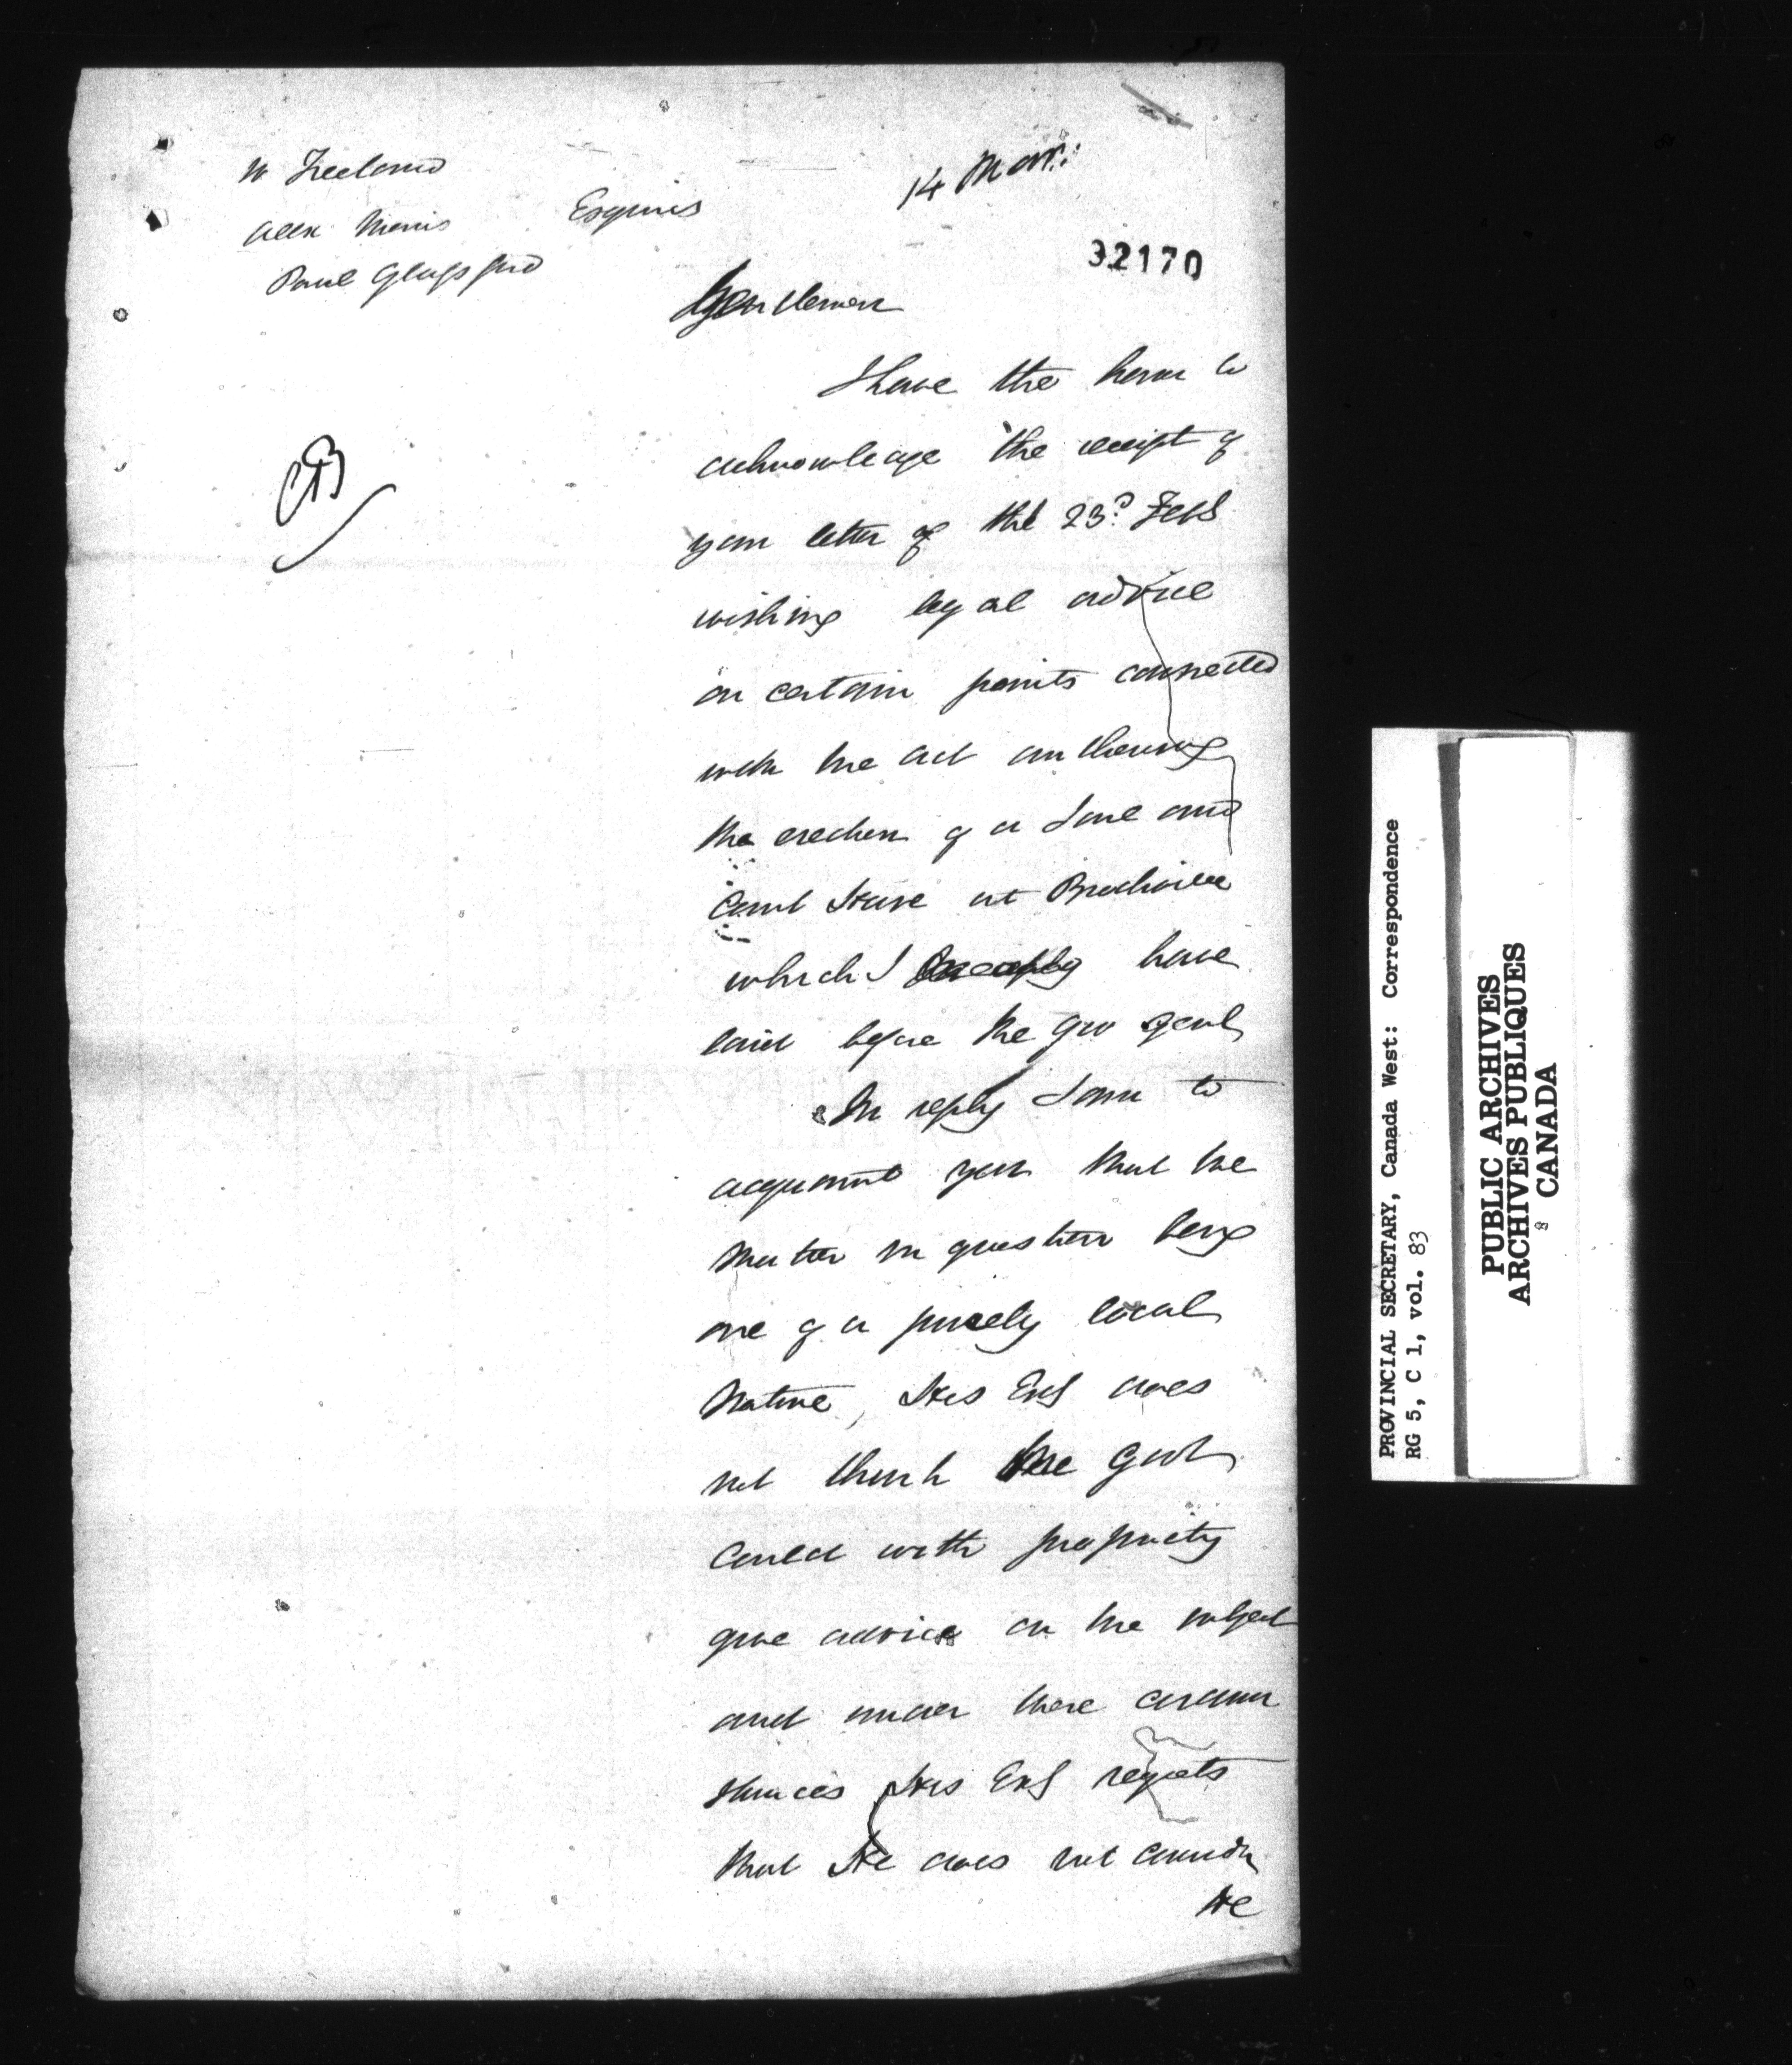 14 Mar:
W Freeland
Alex Morris Esquires
Paul Glassford
32170
Gentlemen
I have the honor to
acknowledge the receipt of
your letter of the 23d Feb
wishing legal advice
on certain points connected
with the act authorising
the erection of a Jail and
Court House at Brockville
which I have
laid before the Gov Genl
In reply I am to
acquaint you that the
matter in question being
one of a purely local
nature, His Exy does
not think the Govt
could with propriety
give advice on the subject
and under these circum
stances His Exy regrets
that He does not consider
He
PROVINCIAL SECRETARY, Canada West: Correspondence
RG 5, C 1, vol. 83
PUBLIC ARCHIVES
ARCHIVES PUBLIQUES
CANADA